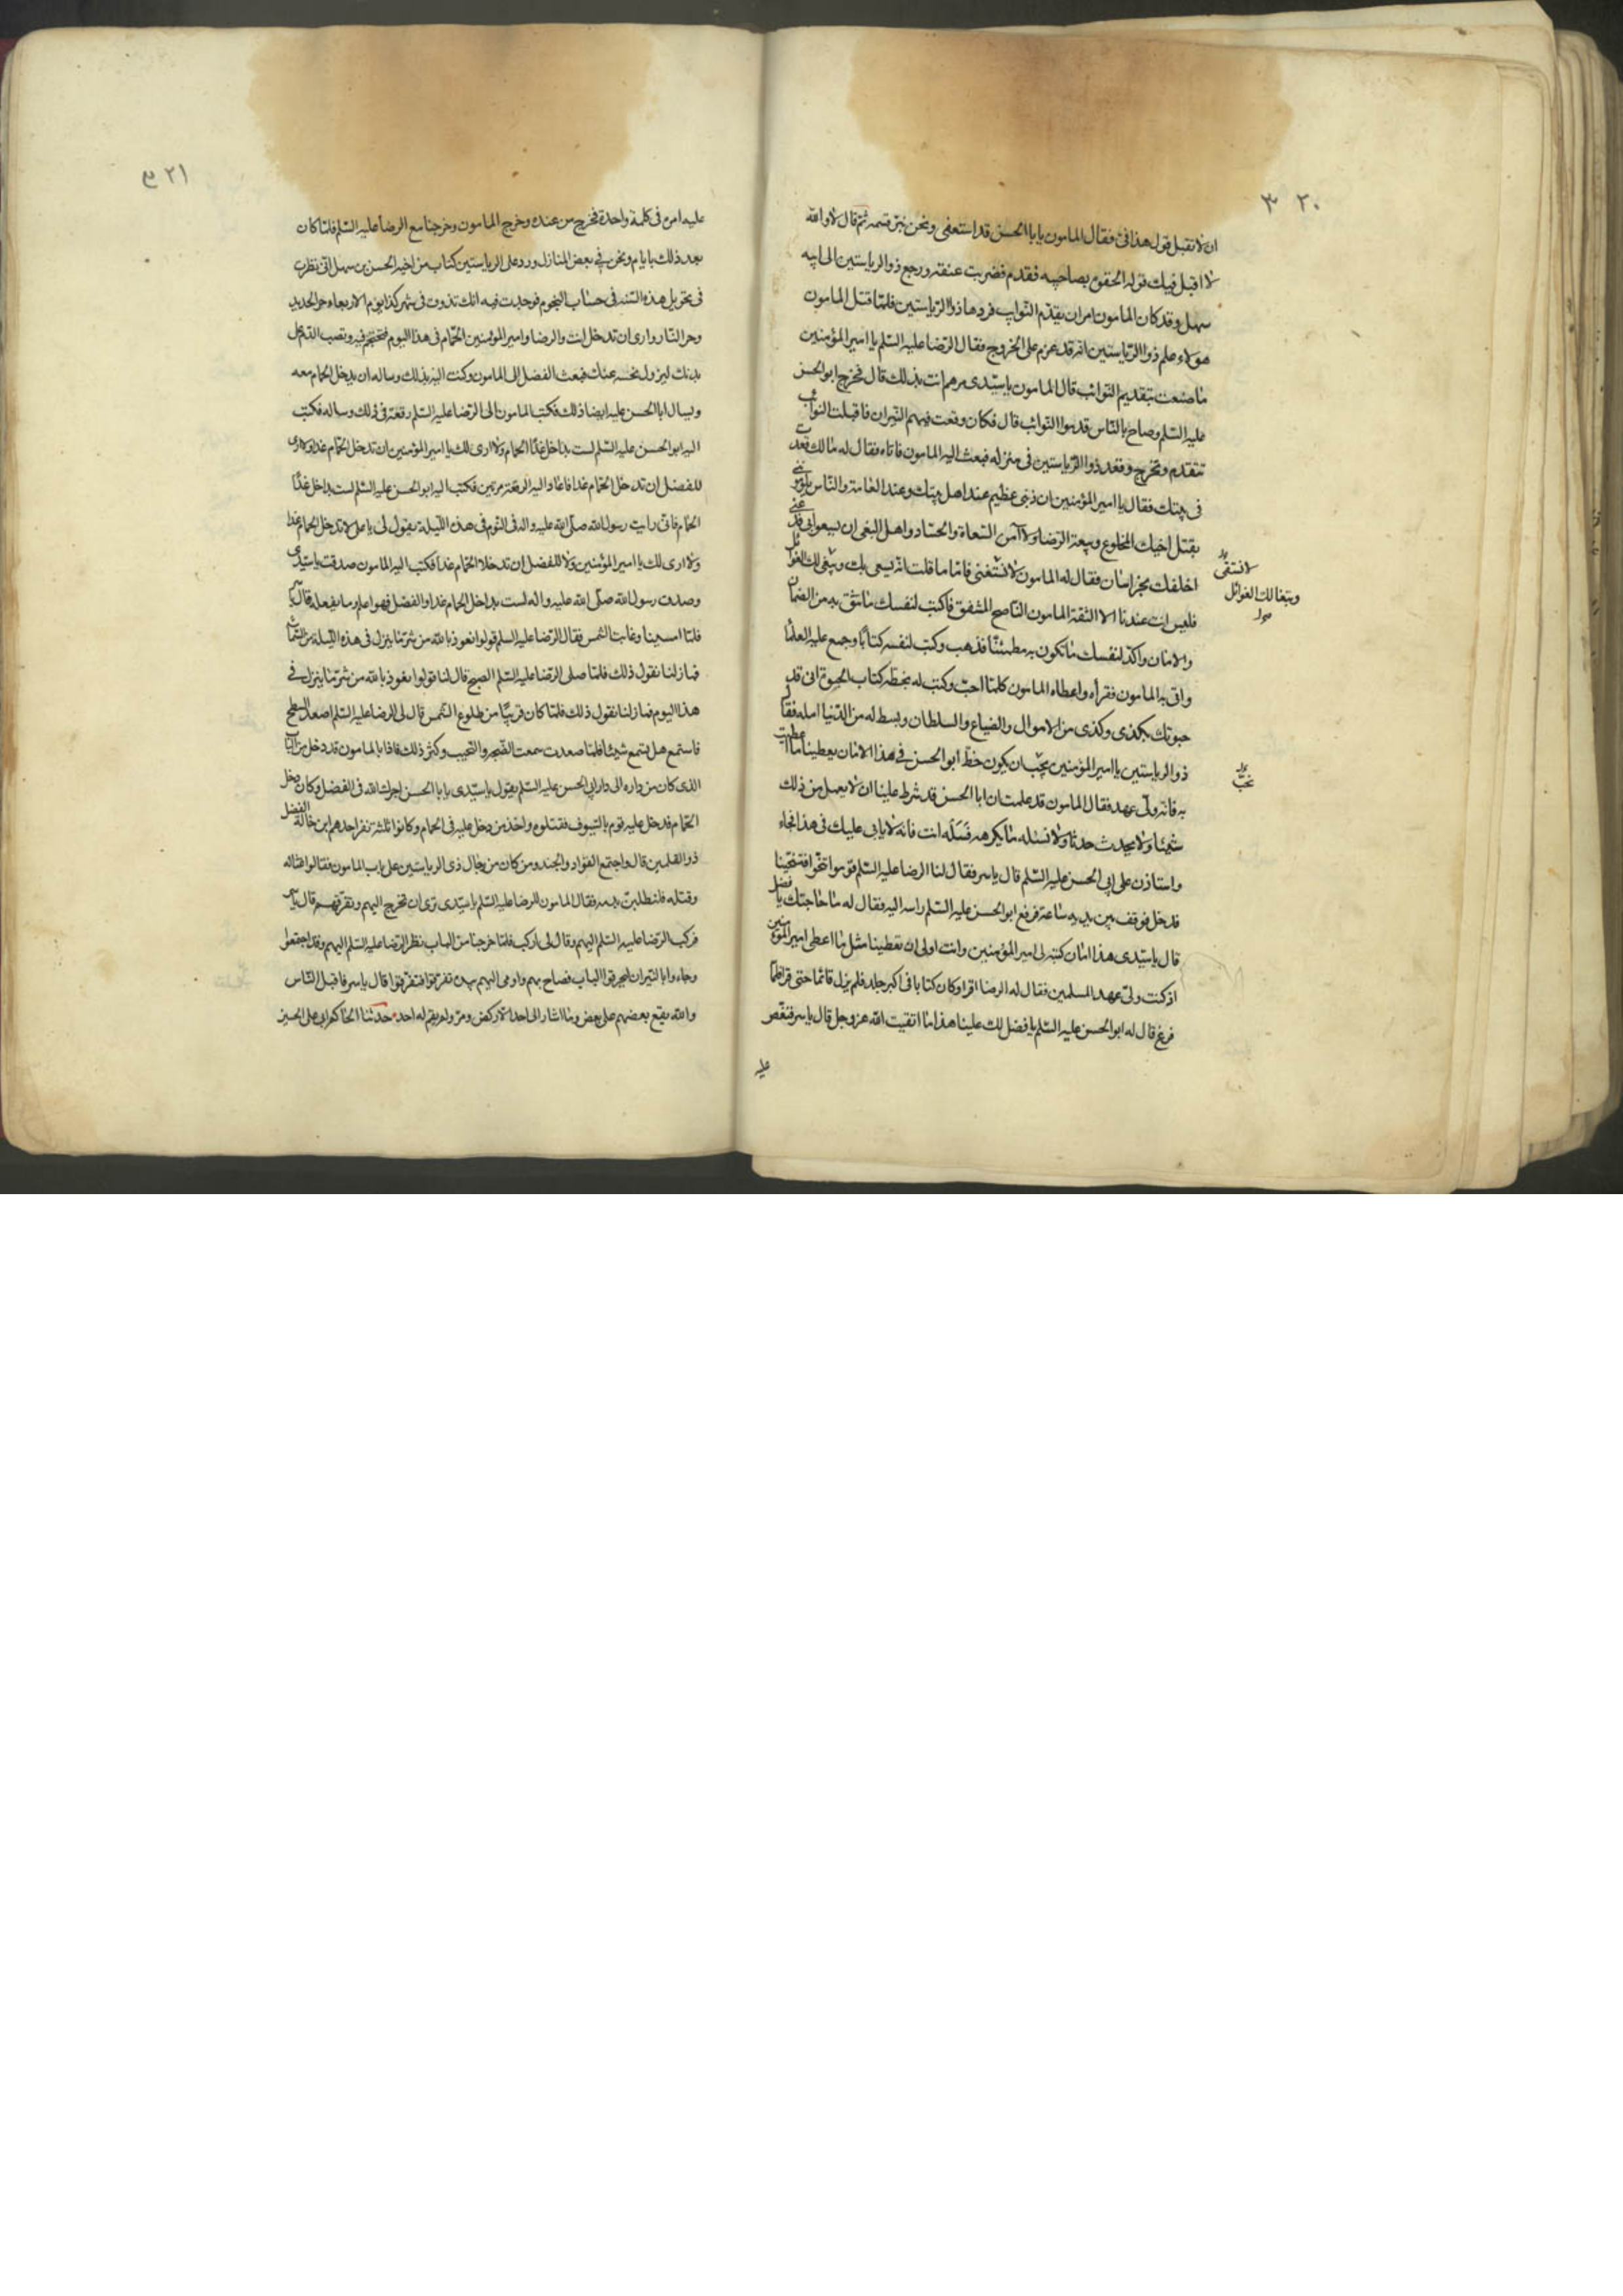 ٣٢٠
ان لا تقبل قول هذا فيّ فقال المامون يا با الحسن قد استعفى ونحن نبرّ قسمه ثم قال لا والله
لا اقبل فيك قوله الحقوه بصاحبيه فقدم فضربت عنقه ورجع ذو الرياستين الى ابيه
سهل وقد كان المامون امر ان يقدّم النوايب فردها ذو الرياستين فلمّا قتل المامون
هؤلاء علم ذو الرياستين انه قد عزم على الخروج فقال الرضا عليه السّلم يا امير المؤمنين
ما صنعت بتقديم النوائب قال المامون يا سيّدى مرهم انت بذلك قال فخرج ابو الحسن
عليه السّلم وصاح بالنّاس قدموا النوائب قال فكان وقعت فيهم النّيران فاقبلت النوايب
تتقدم وتخرج وقعد ذو الرّياستين فى منزله فبعث اليه المامون فاتاه فقال له مالك قعدت
فى بيتك فقال يا امير المؤمنين ان ذنبى عظيم عند اهل بيتك وعند العامة والنّاس يلوموننى
بقتل اخيك المخلوع وبيعة الرّضا ولا آمن السّعاة والحسّاد واهل البغى ان يسعوا بى فدعنى
اخلفك بخراسان فقال له المامون لا نستغنى عنك فامّا ما قلت انه يسعى بك ويبغى لك الغوائل
فليس انت عندنا الا الثقة المامون النّاصح المشفق فاكتب لنفسك ما تثق به من الضمان
والامان واكّد لنفسك ما تكون به مطمئنّا فذهب وكتب لنفسه كتابًا وجمع عليه العلمآ
واتى به المامون فقرأه واعطاه المامون كلما احبّ وكتب له بخطّه كتاب الحبوة انى قد
حبوتك بكذى وكذى من الاموال والضياع والسلطان وبسط له من الدّنيا امله فقال
ذو الرياستين يا امير المؤمنين يجب ان يكون خطّ ابو الحسن فى هذا الامان يعطينا ما اعطيت
به فانه ولىّ عهد فقال المامون قد علمت ان ابا الحسن قد شرط علينا ان لا يعمل من ذلك
شيئا ولا يحدث حدثا ولا نسئله ما يكرهه فَسَله انت فانه لا يابى عليك فى هذا فجاء
واستاذن على ابى الحسن عليه السّلم قال ياسر فقال لنا الرضا عليه السّلم قوموا تنحّوا فتنحّينا
فدخل فوقف بين يديه ساعة فرفع ابو الحسن عليه السّلم راسه اليه فقال له ما حاجتك يا فضل
قال يا سيّدى هذا امان كتبه لى امير المؤمنين وانت اولى ان تعطينا مثل ما اعطى امير المؤمنين
اذ كنت ولىّ عهد المسلمين فقال له الرضا اقراه وكان كتابا فى اكبر جلد فلم يزل قائما حتى قراه فلمّا
فرغ قال له ابو الحسن عليه السّلم يا فضل لك علينا هذا ما اتقيت الله عز وجل قال ياسر فنغّص
عليه
ويبغا لك الغوائل
٣٢١
عليه امره فى كلمة واحدة فخرج من عنده وخرج المامون وخرجنا مع الرضا عليه السّلم فلمّا كان
بعد ذلك بايام ونحن فى بعض المنازل ورد على ذى الرياستين كتاب من اخيه الحسن بن سهل انّى نظرت
فى تحويل هذه السّنه فى حساب النجوم فوجدت فيه انك تذوق فى شهر كذا يوم الاربعاء حر الحديد
وحر النّار وارى ان تدخل انت والرضا وامير المؤمنين الحمّام فى هذا اليوم فتحتجم فيه وتصب الدّم على
بدنك ليزول نحسه عنك فبعث الفضل الى المامون وكتب اليه بذلك وساله ان يدخل الحمام معه
ويسال ابا الحسن عليه ايضا ذلك فكتب المامون الى الرّضا عليه السّلم رقعة فى ذلك وساله فكتب
اليه ابو الحسن عليه السّلم لست بداخل غدًا الحمام ولا ارى لك يا امير المؤمنين ان تدخل الحمّام غدا ولا ارى
للفضل ان تدخل الحمّام غدا فاعاد اليه الرقعة مرتين فكتب اليه ابو الحسن عليه السّلم لست بداخل غدًا
الحمّام فانّى رايت رسول الله صلّى الله عليه واله فى النّوم فى هذه اللّيلة يقول لى يا على لا تدخل الحمام غدا
ولا ارى لك يا امير المؤمنين ولا للفضل ان تدخلا الحمّام غدا فكتب اليه المامون صدقت يا سيّدى
وصدق رسول الله صلّى الله عليه واله لست بداخل الحمام غدا والفضل فهو اعلم وما يفعله قال ياسر
فلمّا امسينا وغابت الشمس فقال الرّضا عليه السلم قولوا نعوذ بالله من شر ما ينزل فى هذه الليلة
فما زلنا نقول ذلك فلمّا صلى الرّضا عليه السّلم الصبح قال لنا قولوا نعوذ بالله من شرّ ما ينزل فى
هذا اليوم فما زلنا نقول ذلك فلمّا كان قريبًا من طلوع الشّمس قال لى الرضا عليه السّلم اصعد السطح
فاستمع هل تسمع شيئا فلمّا صعدت سمعت الضّجة والنّحيب وكثر ذلك فاذا بالمامون قد دخل من الباب
الذى كان من داره الى دار ابى الحسن عليه السّلم يقول يا سيّدى يا با الحسن اجرك الله فى الفضل وكان دخل
الحمّام فدخل عليه قوم بالسّيوف فقتلوه واخذ من دخل عليه فى الحمام وكانوا ثلثة نفر احدهم ابن خالة الفضل
ذو القلمين قال واجتمع القوّاد والجند ومن كان من رجال ذى الرياستين على باب المامون فقالوا اغتاله
وقتله فلنطلبنّ بدمه فقال المامون للرضا عليه السّلم يا سيّدى ترى ان تخرج اليهم وتفرّقهم قال ياسر
فركب الرّضا عليه السّلم اليهم وقال لى اركب فلمّا خرجنا من الباب نظر الرّضا عليه السّلم اليهم وقد اجتمعوا
وجاءوا بالنّيران ليحرقوا الباب فصاح بهم واومى اليهم بيده تفرّقوا فتفرّقوا قال ياسر فاقبل النّاس
والله يقع بعضهم على بعض وما اشار الى احد الا ركض ومرّ ولم يقم له احد حدثنا الحاكم ابى على الحسين